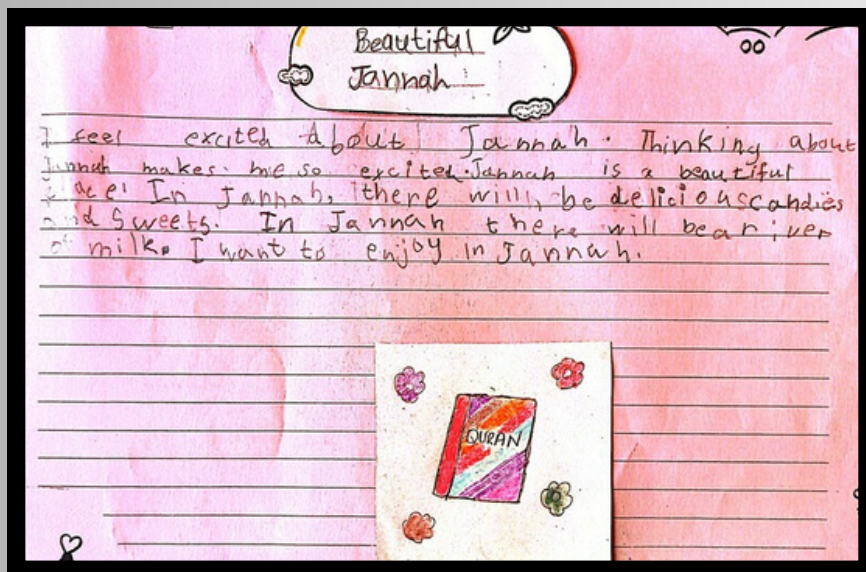 Beautiful
Jannah
I feel excited about Jannah. Thinking about
Jannah makes me so excited. Jannah is a beautiful
place! In Jannah, there will, be delicious candies
and sweets. In Jannah there will be a river
of milk. I want to enjoy in Jannah.
QURAN